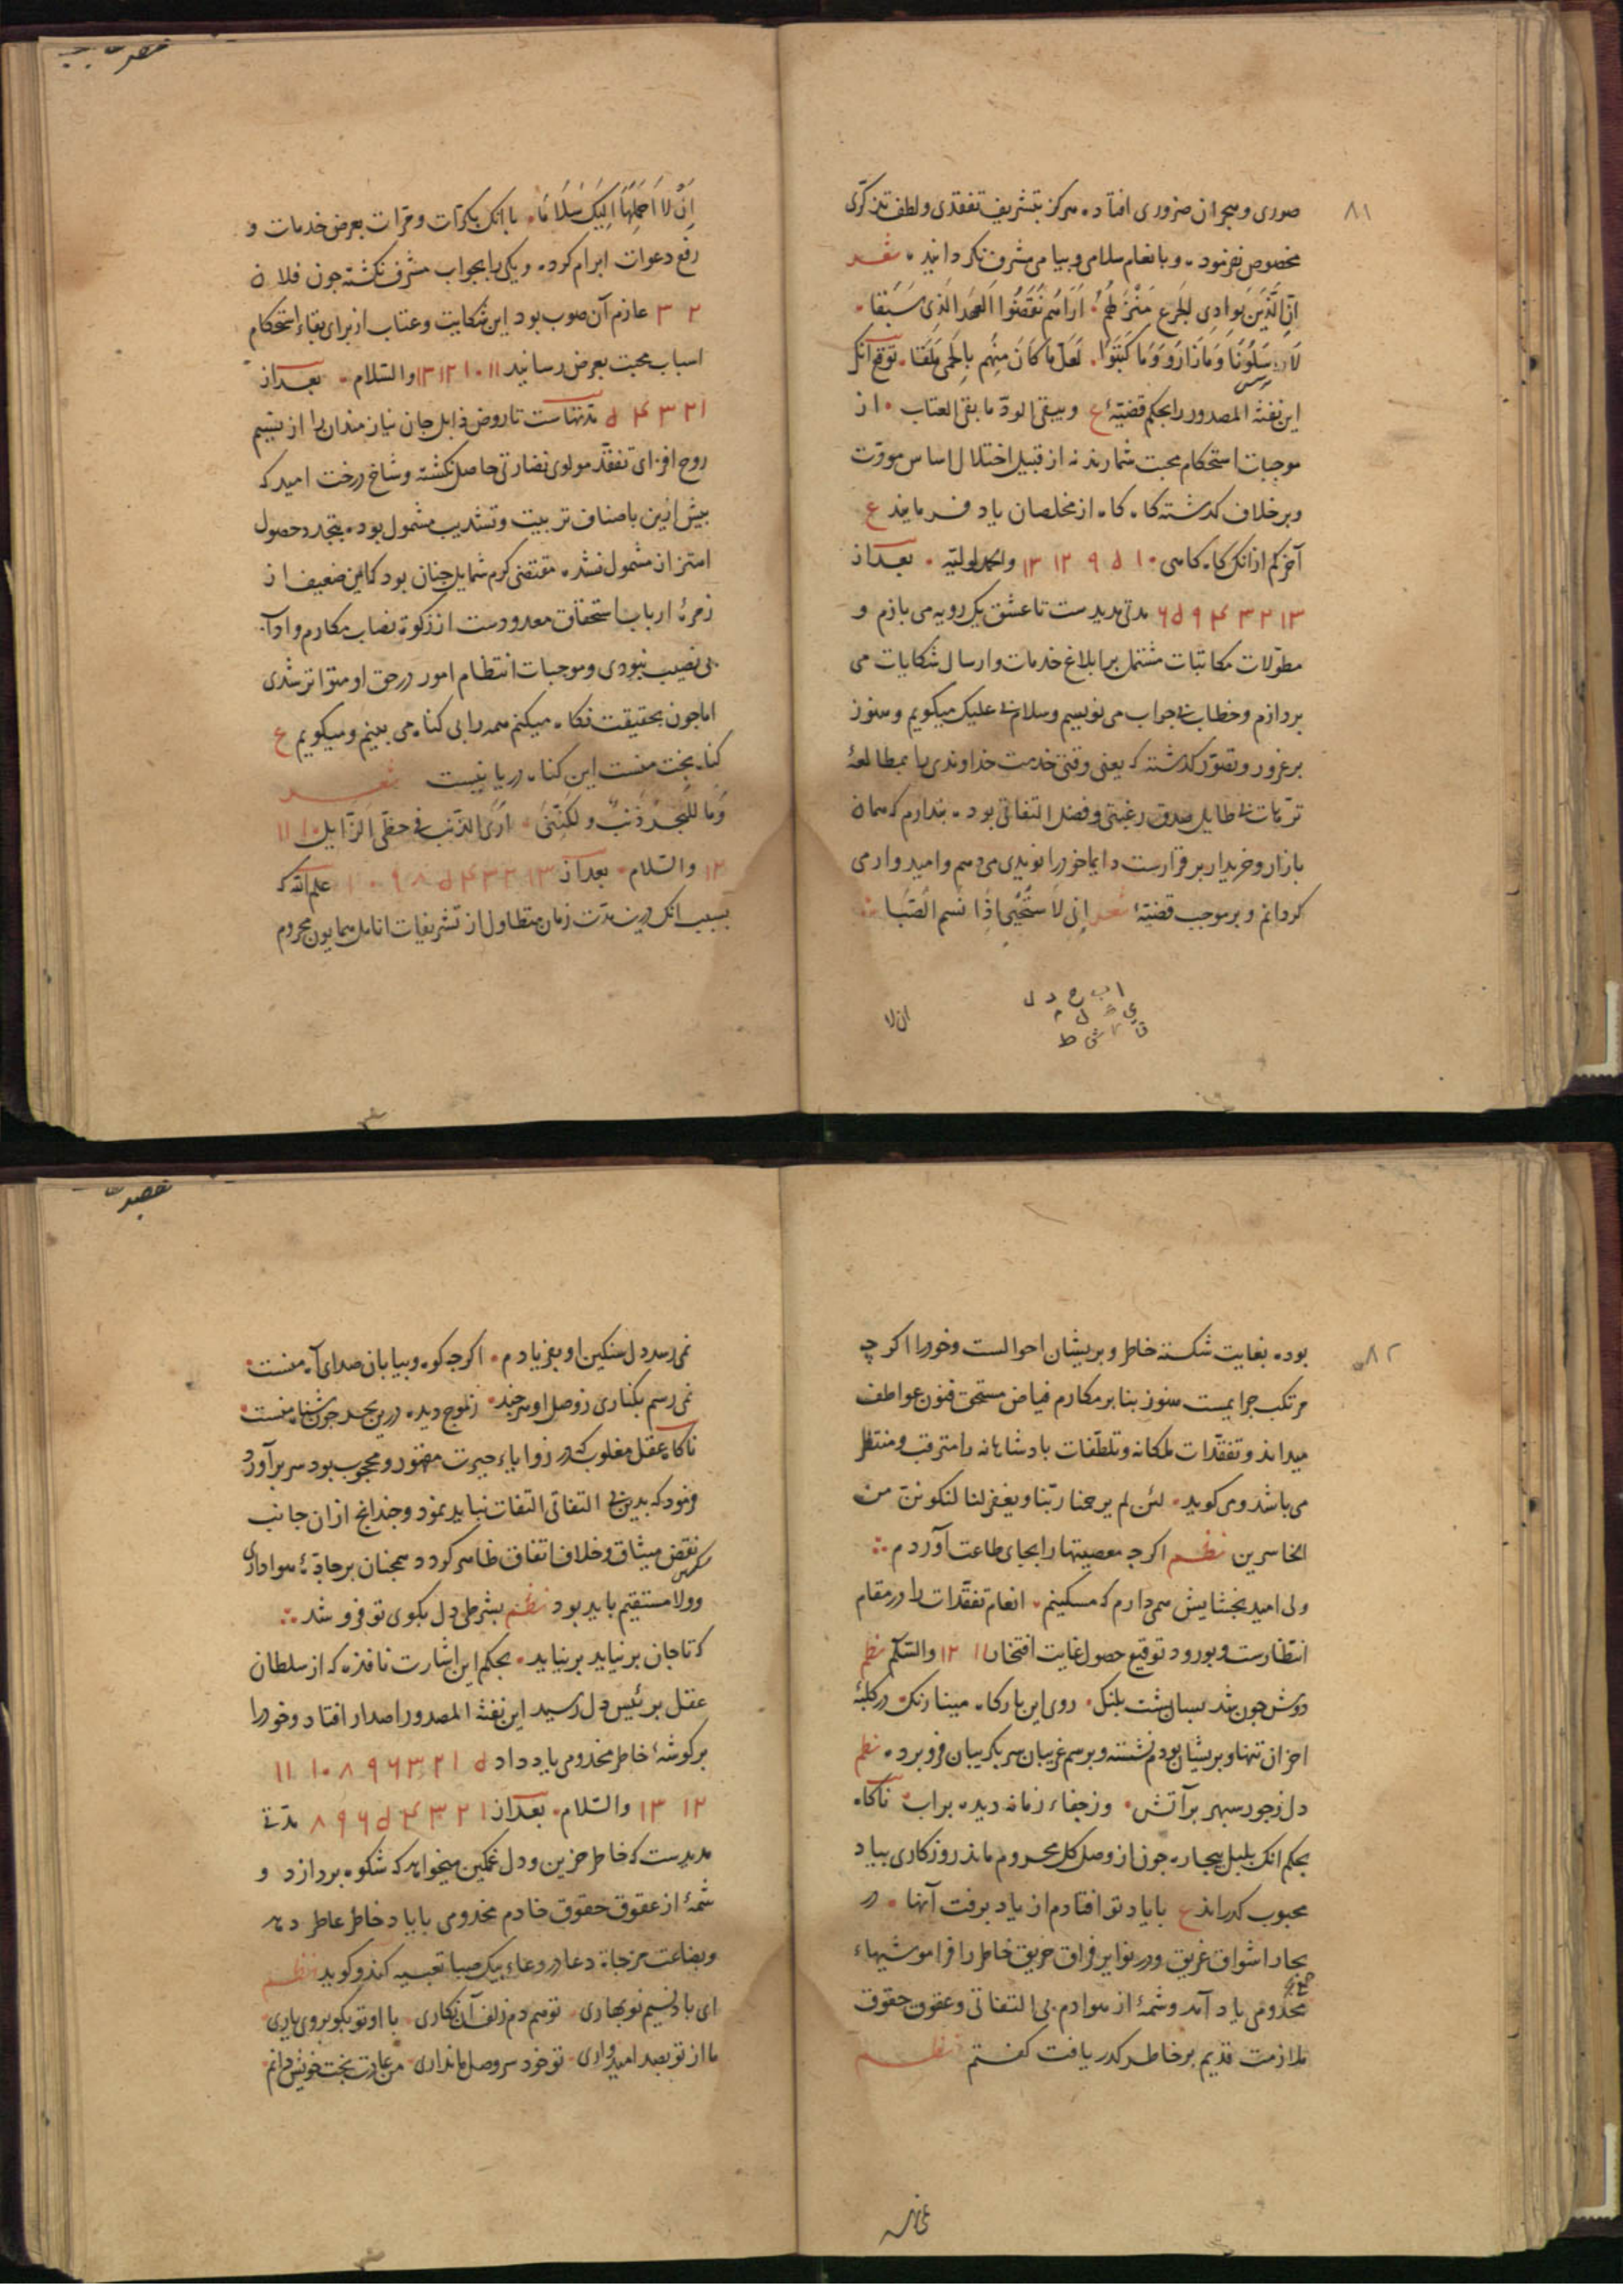 ۸۱
صوری و هجران ضروری افتاده هرکز بتشریف تفقدی و لطف تذکری
مخصوص نفرمود و بانعام سلامی و بیامی مشرف نکردانید شعر
ان الذین بوادی الجزع منزلهم اراهم نقضوا العهد الذی سبقا
وما زاروا وما کتبوا لعل ما کان منهم بالحمی ملقا توقع آنک
این نفثة المصدور را بحکم قضیهٔ ع ویبقی الود ما بقی العتاب از
موجبات استحکام محبت شمارند نه از قبیل اختلال اساس مودّت
و برخلاف کذشته کاه کاه از مخلصان یاد فرمایند ع
آخر کم ازانک کاه کاهی ۱۰ ۵ ۹ ۱۲ ۱۳ والحمد لولیه بعد از
۱۳ ۲ ۳ ۴ ۹ ۵ ۶ مدتی مدیدست تا عشق یک رویه می بازم و
مطوّلات مکاتبات مشتمل بر ابلاغ خدمات و ارسال شکایات می
بردازم و خطاب بی جواب می نویسم و سلام بی علیک میکویم و هنوز
بر غرور و تصوّر کذشته که یعنی وقتی خدمت خداوندی را بمطالعهٔ
ترّهات بی طایل صدق رغبتی و فضل التفاتی بوده بندارم که همان
بازار و خریدار برقرارست دایما خود را نویدی می دهم و امیدوار می
کردانم و بر موجب قضیهٔ شعر انی لاستحیی اذا نسم الصبا
ا ب ح د ل
ان لا
ان لا احملها الیک سلاما با انک بکرّات و مرّات بعرض خدمات و
رفع دعوات ابرام کرده و یکی را بجواب مشرف نکشته چون فلان
۲ ۳ عازم آن صوب بود این شکایت و عتاب از برای بقاء استحکام
اسباب محبت بعرض رسانید ۱۱ ۱۰ ۱۲ ۱۳ والسلام بعد از
۱ ۲ ۳ ۴ ۵ مدتهاست تا روض ذابل جان نیازمندان را از نسیم
روح افزای تفقد مولوی نضارتی حاصل نکشته و شاخ درخت امید که
بیش ازین باصناف تربیت و تشذیب مشمول بوده بتجدد حصول
اهتزاز مشمول نشده مقتضی کرم شمایل جنان بود که این ضعیف از
زمرهٔ ارباب استحقاق معدودست از زکوة نصاب مکارم و اوآ
بی نصیب نبودی و موجبات انتظام امور در حق او متواتر شدی
اما جون بحقیقت نکاه میکنم همه را بی کناه می بینم و میکویم ع
کناه بخت منست این کناه دریا نیست شعر
وما للبحر ذنب ولکننی اری الذنب فی حظی الزایل ۱۰ ۱۱
۱۲ والسلام بعد از ۱۳ ۲ ۳ ۴ ۵ ۸ ۹ ۱۰ علم الله که
بسبب انک درین مدت زمان متطاول از تشریفات انامل همایون محروم
۸۲
بوده بغایت شکسته خاطر و بریشان احوالست و خود را اکرچه
مرتکب جرایمست هنوز بنا بر مکارم فیاض مستحق فنون عواطف
میداند و تفقدات ملکانه و تلطّفات بادشاهانه را مترقب و منتظر
می باشد و می کوید لئن لم یرحمنا ربّنا و یغفر لنا لنکونن من
الخاسرین نظم اکرچه معصیتها را بجای طاعت آوردم
ولی امید بخشایش همی دارم که مسکینم انعام تفقدات را در مقام
انتظارست و بورود توقیع حصول غایت افتخار ۱۱ ۱۳ والسلم نظم
دوش جون شد بسان بشت بلنک روی این بارکاه مینا رنک در کلبهٔ
احزان تنها و بریشان بودم نشسته و برسم غریبان سر بکریبان فرو برده نظم
دل زجور سبهر برآتش وز جفاء زمانه دیده برآب ناکاه
بحکم انک بلبل بیجاره جون از وصل کل محروم ماند روزکاری بیاد
محبوب کدراند ع با یاد تو افتادم از یاد برفت آنها در
بحار اشواق غریق و در نوایر فراق حریق خاطر را فراموشیهاء
مخدومی یاد آمد و شمهٔ از هوادم بی التفاتی و عقوق حقوق
ملازمت قدیم بر خاطر کدر یافت کفتم نظم
نمی رسد دل سنکین او بفریادم اکرجه کوه و بیابان صدای آه منست
نمی رسم بکناری ز وصل او هرجند ز موج دیده درین بحر جون شناه منست
ناکاه عقل مغلوب که در زوایاء حیرت مقهور و محجوب بود سر برآورد
فرمود که بدین بی التفاتی التفات نباید نمود و جندانج ازان جانب
نقض میثاق و خلاف اتفاق ظاهر کردد همجنان بر جادّهٔ هواداری
و ولا مستقیم باید بود نظم بشرطی دل بکوی تو فرو شد
که تا جان برنیاید برنیاید بحکم این اشارت نافذه که از سلطان
عقل برئیس دل رسید این نفثة المصدور اصدار افتاد و خود را
بر کوشهٔ خاطر مخدومی یاد داد ۵ ۱ ۲ ۳ ۶ ۹ ۸ ۱۰ ۱۱
۱۲ ۱۳ والسلام بعد از ۱ ۲ ۳ ۴ ۵ ۶ ۹ ۸ مدتی
مدیدست که خاطر حزین و دل غمکین میخواهد که شکوه بردازد و
شمهٔ از عقوق حقوق خادم مخدومی با یاد خاطر عاطر دهد
و بضاعت مزجاة دعا در وعاء بیک صبا تعبیه کند و کوید نظم
ای باد نسیم نوبهاری تو همدم زلف آن نکاری با او تو بکو بروی یاری
ما از تو بصد امیدواری تو خود سر وصل ما نداری من عادت بخت خویش دانم